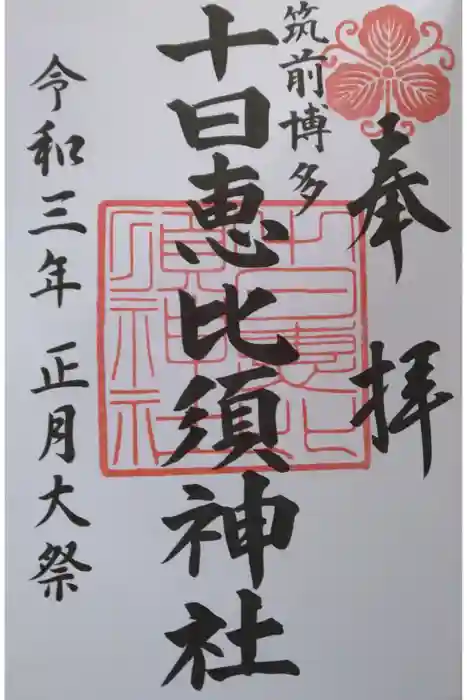 奉拝
筑前博多
十日恵比須神社
令和三年 正月大祭
十日恵比須神社